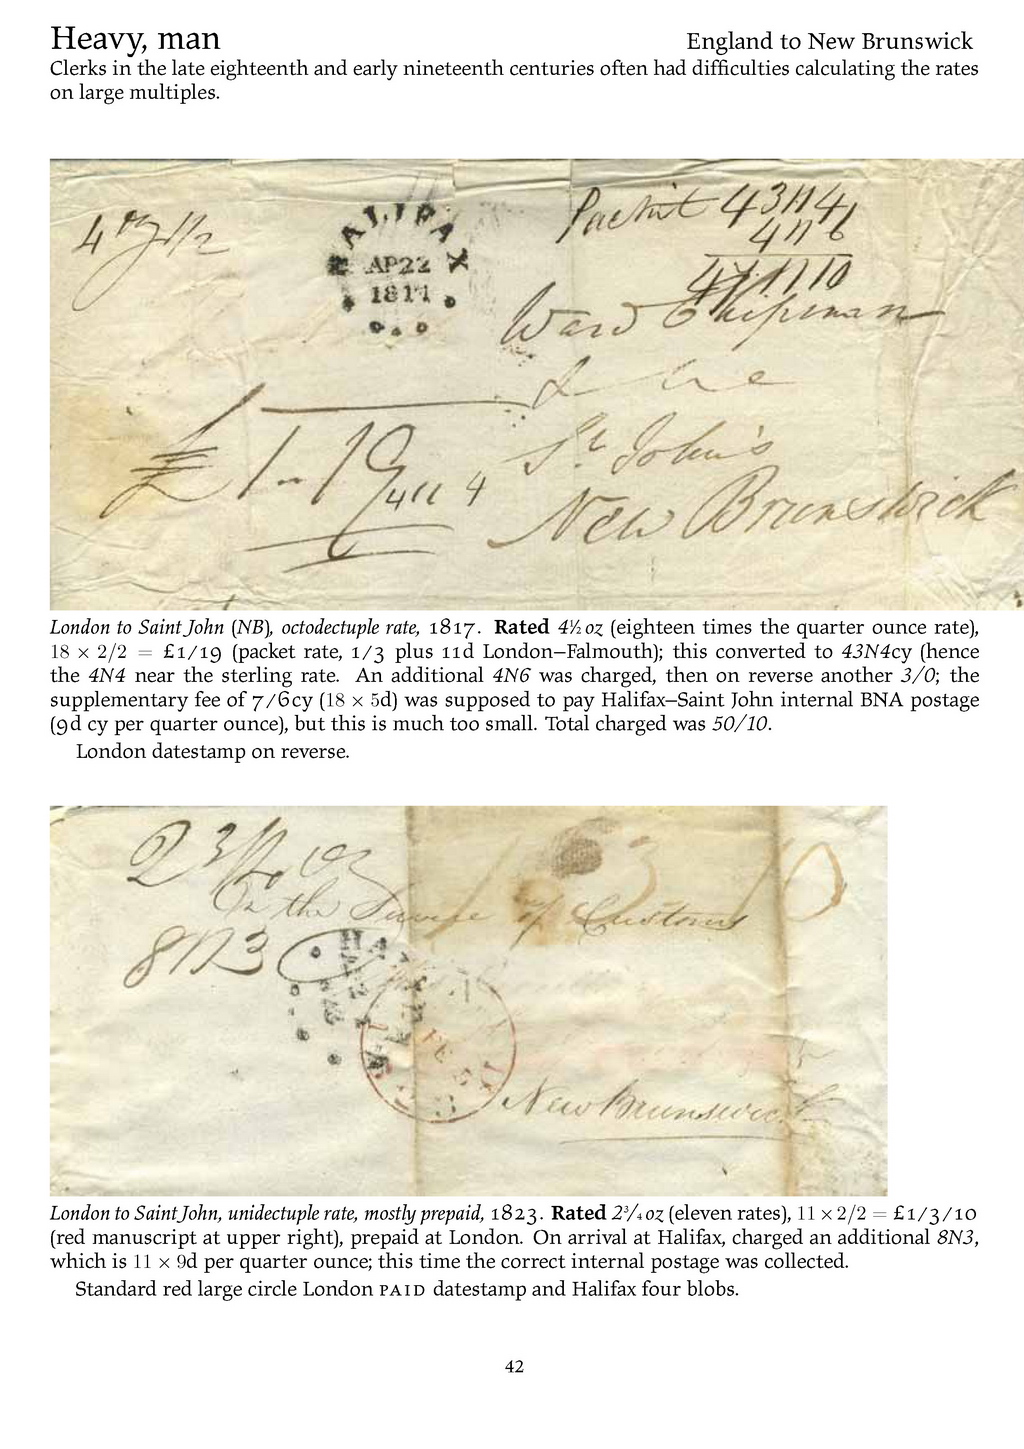 Heavy, man
England to New Brunswick
Clerks in the late eighteenth and early nineteenth centuries often had difficulties calculating the rates
on large multiples.
4 oz 1/2
HALIFAX
AP22
1817
Packet 43N4
4N6
47N10
Ward Chipman
St. John's
£1-19
4N4
New Brunswick
London to Saint John (NB), octodectuple rate, 1817. Rated 4½ oz (eighteen times the quarter ounce rate),
18 × 2/2 = £1/19 (packet rate, 1/3 plus 11d London–Falmouth); this converted to 43N4cy (hence
the 4N4 near the sterling rate. An additional 4N6 was charged, then on reverse another 3/0; the
supplementary fee of 7/6cy (18 × 5d) was supposed to pay Halifax–Saint John internal BNA postage
(9d cy per quarter ounce), but this is much too small. Total charged was 50/10.
London datestamp on reverse.
2 3/4 oz
1 3 10
On the Service of Customs
8N3
New Brunswick
London to Saint John, unidectuple rate, mostly prepaid, 1823. Rated 2¾ oz (eleven rates), 11 × 2/2 = £1/3/10
(red manuscript at upper right), prepaid at London. On arrival at Halifax, charged an additional 8N3,
which is 11 × 9d per quarter ounce; this time the correct internal postage was collected.
Standard red large circle London PAID datestamp and Halifax four blobs.
42